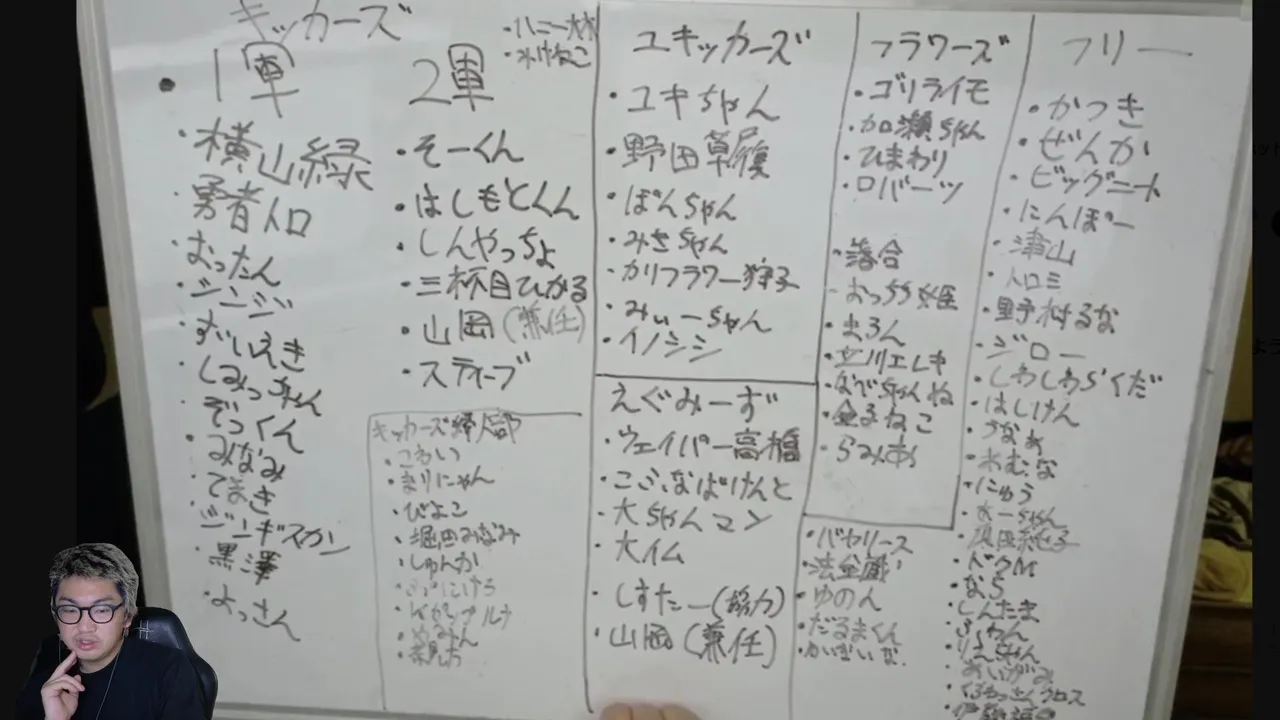 キッカーズ
・ハニー木木
・1軍
・横山緑
・勇者トロ
・おったん
・ジンジン
・ずいえき
・しみっちゃん
・ぞっくん
・みなみ
・てまき
・ジンギスカン
・黒澤
・よっさん
2軍
・そーくん
・はしもとくん
・しんやっちょ
・三杯目ひかる
・山岡(兼任)
・スティーブ
キッカーズ婦人部
・こわい
・まりにゃん
・ぴよこ
・堀田みなみ
・しゅんか
ユキッカーズ
・ユキちゃん
・野田草履
・ぽんちゃん
・みさちゃん
・カリフラワー狩子
・みぃーちゃん
・イノシシ
えぐみーず
・ウェイパー高橋
・こふなぱけんと
・大ちゃんマン
・大イム
・しすたー(協力)
・山岡(兼任)
フラワーズ
・ゴリライモ
・加瀬ちゃん
・ひまわり
・ロバーツ
・落合
・おっちゃ姫
・まろん
・立川エレキ
・なでちゃんね
・金子ねこ
・らみあ
・バヤリース
・法金蔵
・ゆのん
・だるまくん
フリー
・かつき
・ぜんか
・ビッグニート
・にんぽー
・津山
・トロミ
・野村るな
・ジロー
・しわしわらくだ
・はしけん
・うなぁ
・れむなな
・にゅう
・ドクM
・なら
・しんたま
・ふわん
・りえちゃん
・あいがみ